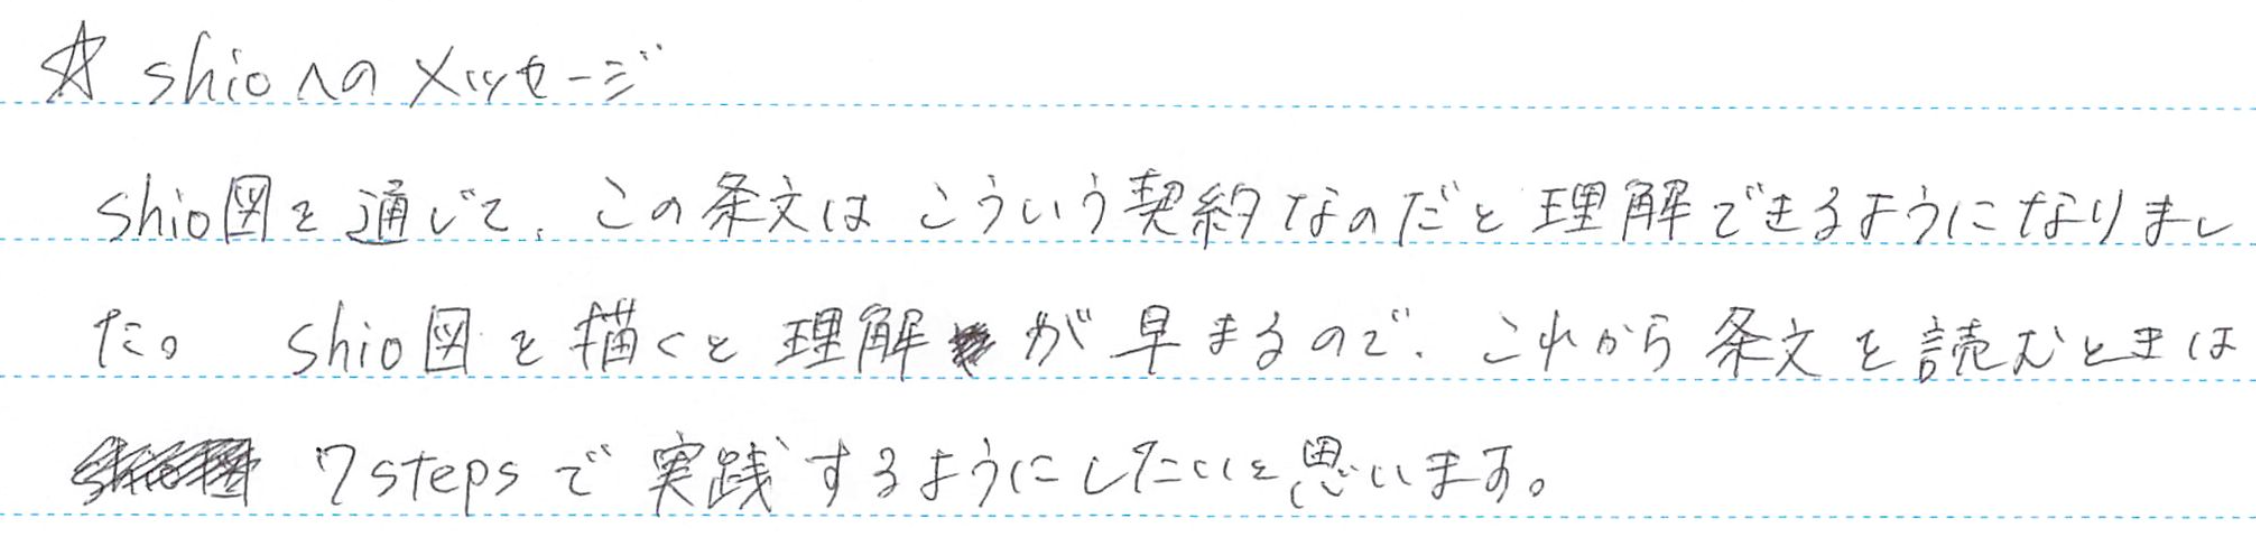 ☆ shioへのメッセージ
shio図を通じて、この条文はこういう契約なのだと理解できるようになりまし
た。 shio図を描くと理解が早まるので、これから条文を読むときは
7stepsで実践するようにしたいと思います。